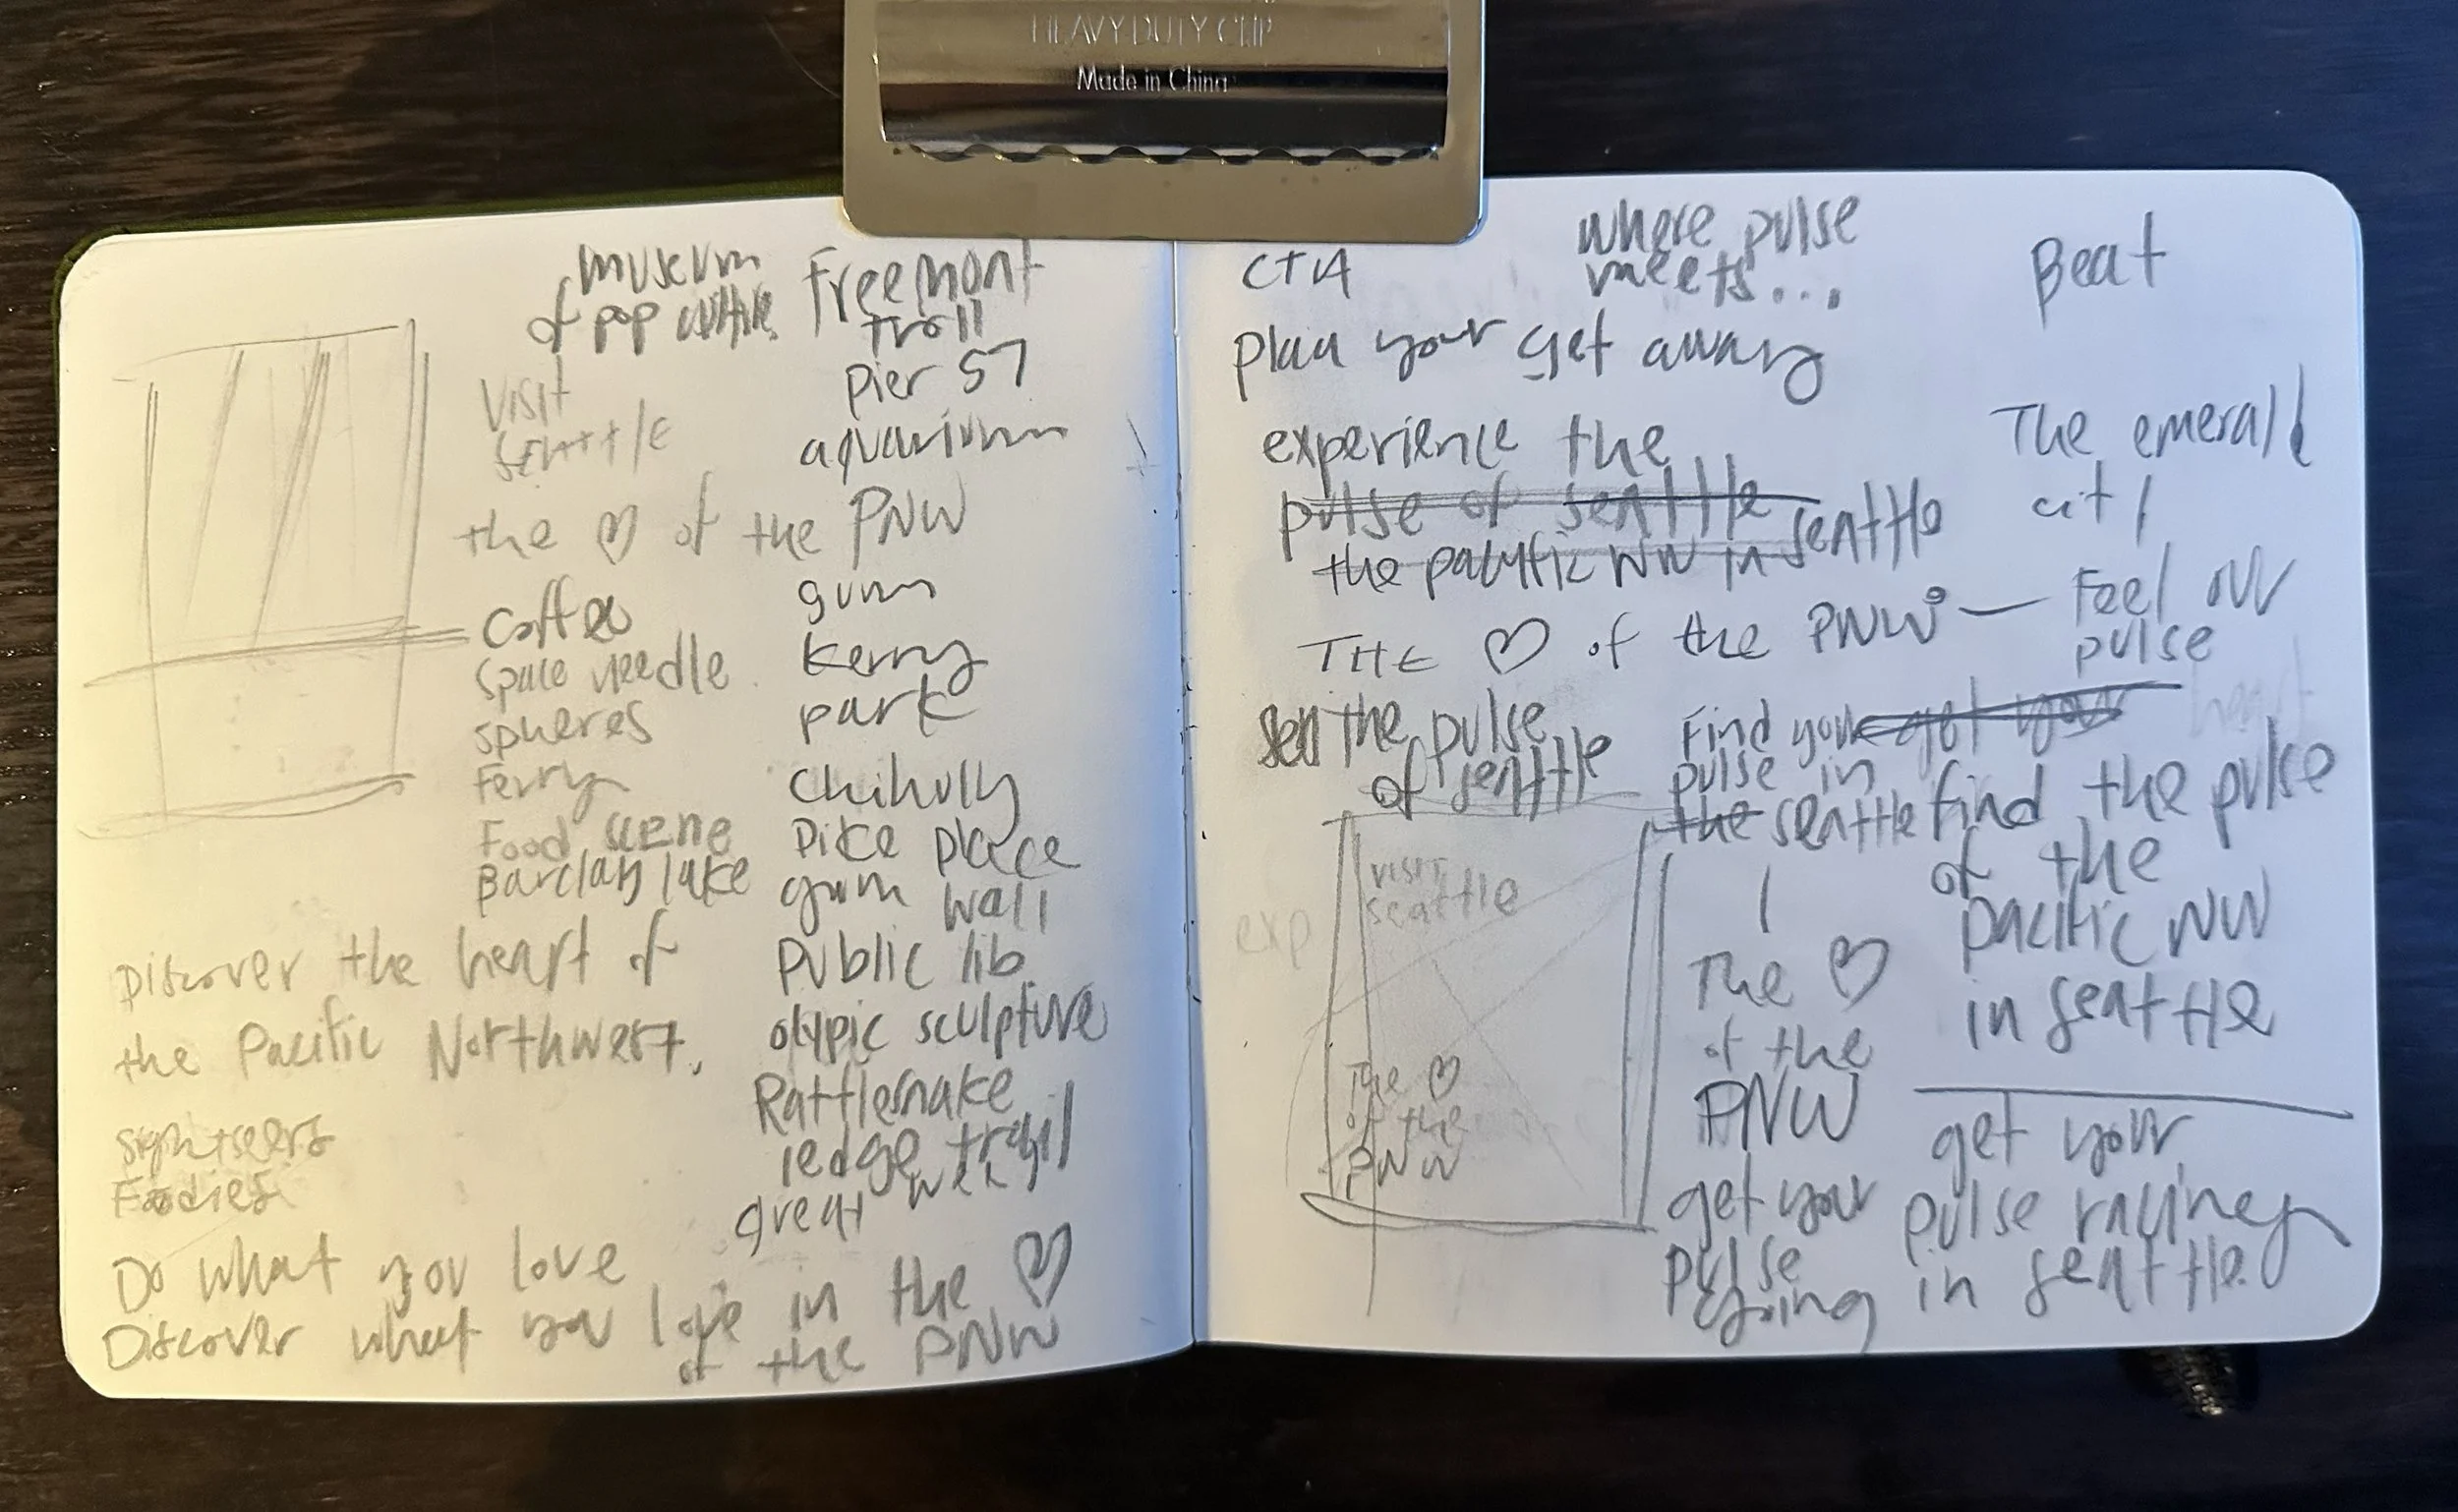 HEAVY DUTY CLIP
Made in China
museum
of pop culture
Freemont
troll
Pier 57
aquarium
Visit
SEATTLE
the ♡ of the PNW
Coffee
Space needle
spheres
Ferry
Food scene
Barclay lake
gum
Kerry
park
Chihuly
Pike place
gum wall
Public lib
olypic sculpture
Rattlesnake
ledge trail
great wheel
Discover the heart of
the Pacific Northwest.
Sightseers
Foodies
Do what you love
Discover what you love in the ♡
of the PNW
CTA
where pulse
meets...
Beat
plan your get away
experience the
pulse of seattle
the pacific NW in seattle
The emerald
city
THE ♡ of the PNW — Feel our
pulse
heart
the pulse
of seattle
Find your get your
pulse in
the seattle
find the pulse
of the
pacific NW
in seattle
exp
VISIT
seattle
The ♡
of the
PNW
The ♡
of the
PNW
get your
pulse
going
get your
pulse racing
in seattle.